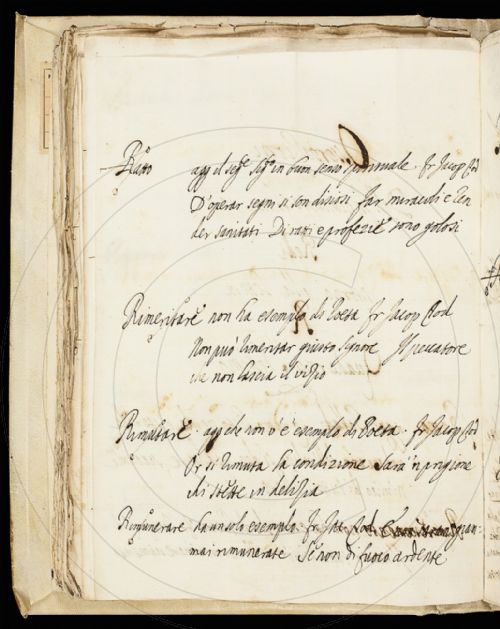 Ratto agg il segᵉ Sigᵒ in buon senso spirituale. Fr Jacop Tod
D'operar segni si son disiosi far miracoli e ren
der sanitati Di ratti e profezie sono golosi
Rimeritare non ha esempio di Poeta Fr Jacop Tod
Non può rimeritar giusto signore Il peccatore
che non lascia il vizio
Rimutare. agg che non v'è esempio di Poeta. Fr Jacop Tod
Or si rimuta la condizione Sarà 'n prigione
chi stette in delizia
Rimunerare ha un solo esempio. Fr Jac. Tod
mai rimunerate Se non di fuoco ardente